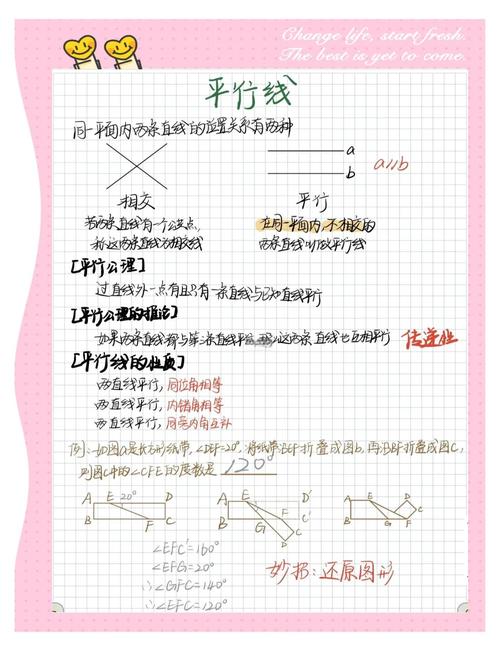 Change life, start fresh.
The best is yet to come.
平行线
同一平面内两条直线的位置关系有两种
a
b
a∥b
相交
平行
若两条直线有一个公共点,
称这两条直线为相交线
在同一平面内,不相交的
两条直线叫做平行线
【平行公理】
过直线外一点有且只有一条直线与已知直线平行
【平行公理的推论】
如果两条直线都与第三条直线平行,那么这两条直线也互相平行 传递性
【平行线的性质】
两直线平行,同位角相等
两直线平行,内错角相等
两直线平行,同旁内角互补
例:如图a是长方形纸带,∠DEF=20°,将纸带沿EF折叠成图b,再沿BF折叠成图c,
则图c中的∠CFE的度数是 120°
A E 20° D
B F C
A E D'
B G F C'
D C
A E D
B G F C
∠EFC'=160°
∠EFG=20°
∴∠GFC=140°
∴∠EFC=120°
妙招:还原图形